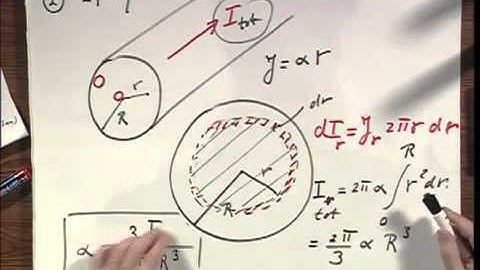 I tot
r
R
J = α r
dr
r
R
dI_r = J_r 2π r dr
R
I_tot = 2π α ∫ r² dr
0
= 2π/3 α R³
α = 3 I / R³